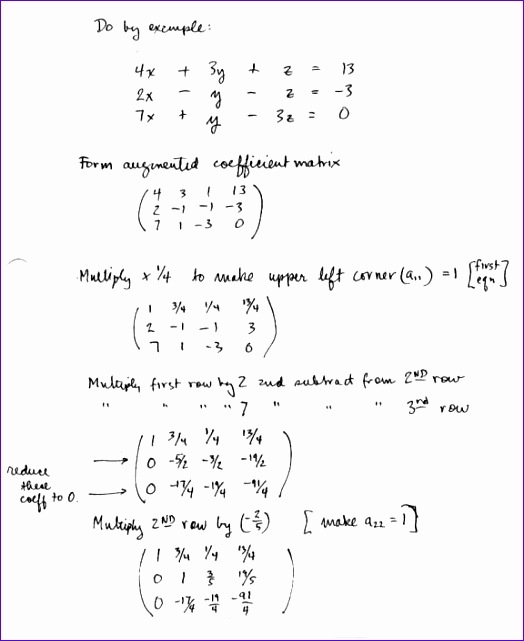 Do by example:
4x + 3y + z = 13
2x - y - z = -3
7x + y - 3z = 0
Form augmented coefficient matrix
4 3 1 13
2 -1 -1 -3
7 1 -3 0
Multiply x 1/4 to make upper left corner (a₁₁) = 1 [first eqn]
1 3/4 1/4 13/4
2 -1 -1 3
7 1 -3 0
Multiply first row by 2 and subtract from 2ND row
" " " " 7 " " " 3rd row
1 3/4 1/4 13/4
0 -5/2 -3/2 -19/2
0 -17/4 -19/4 -91/4
reduce
these
coeff to 0.
Multiply 2ND row by (-2/5) [make a₂₂ = 1]
1 3/4 1/4 13/4
0 1 3/5 19/5
0 -17/4 -19/4 -91/4